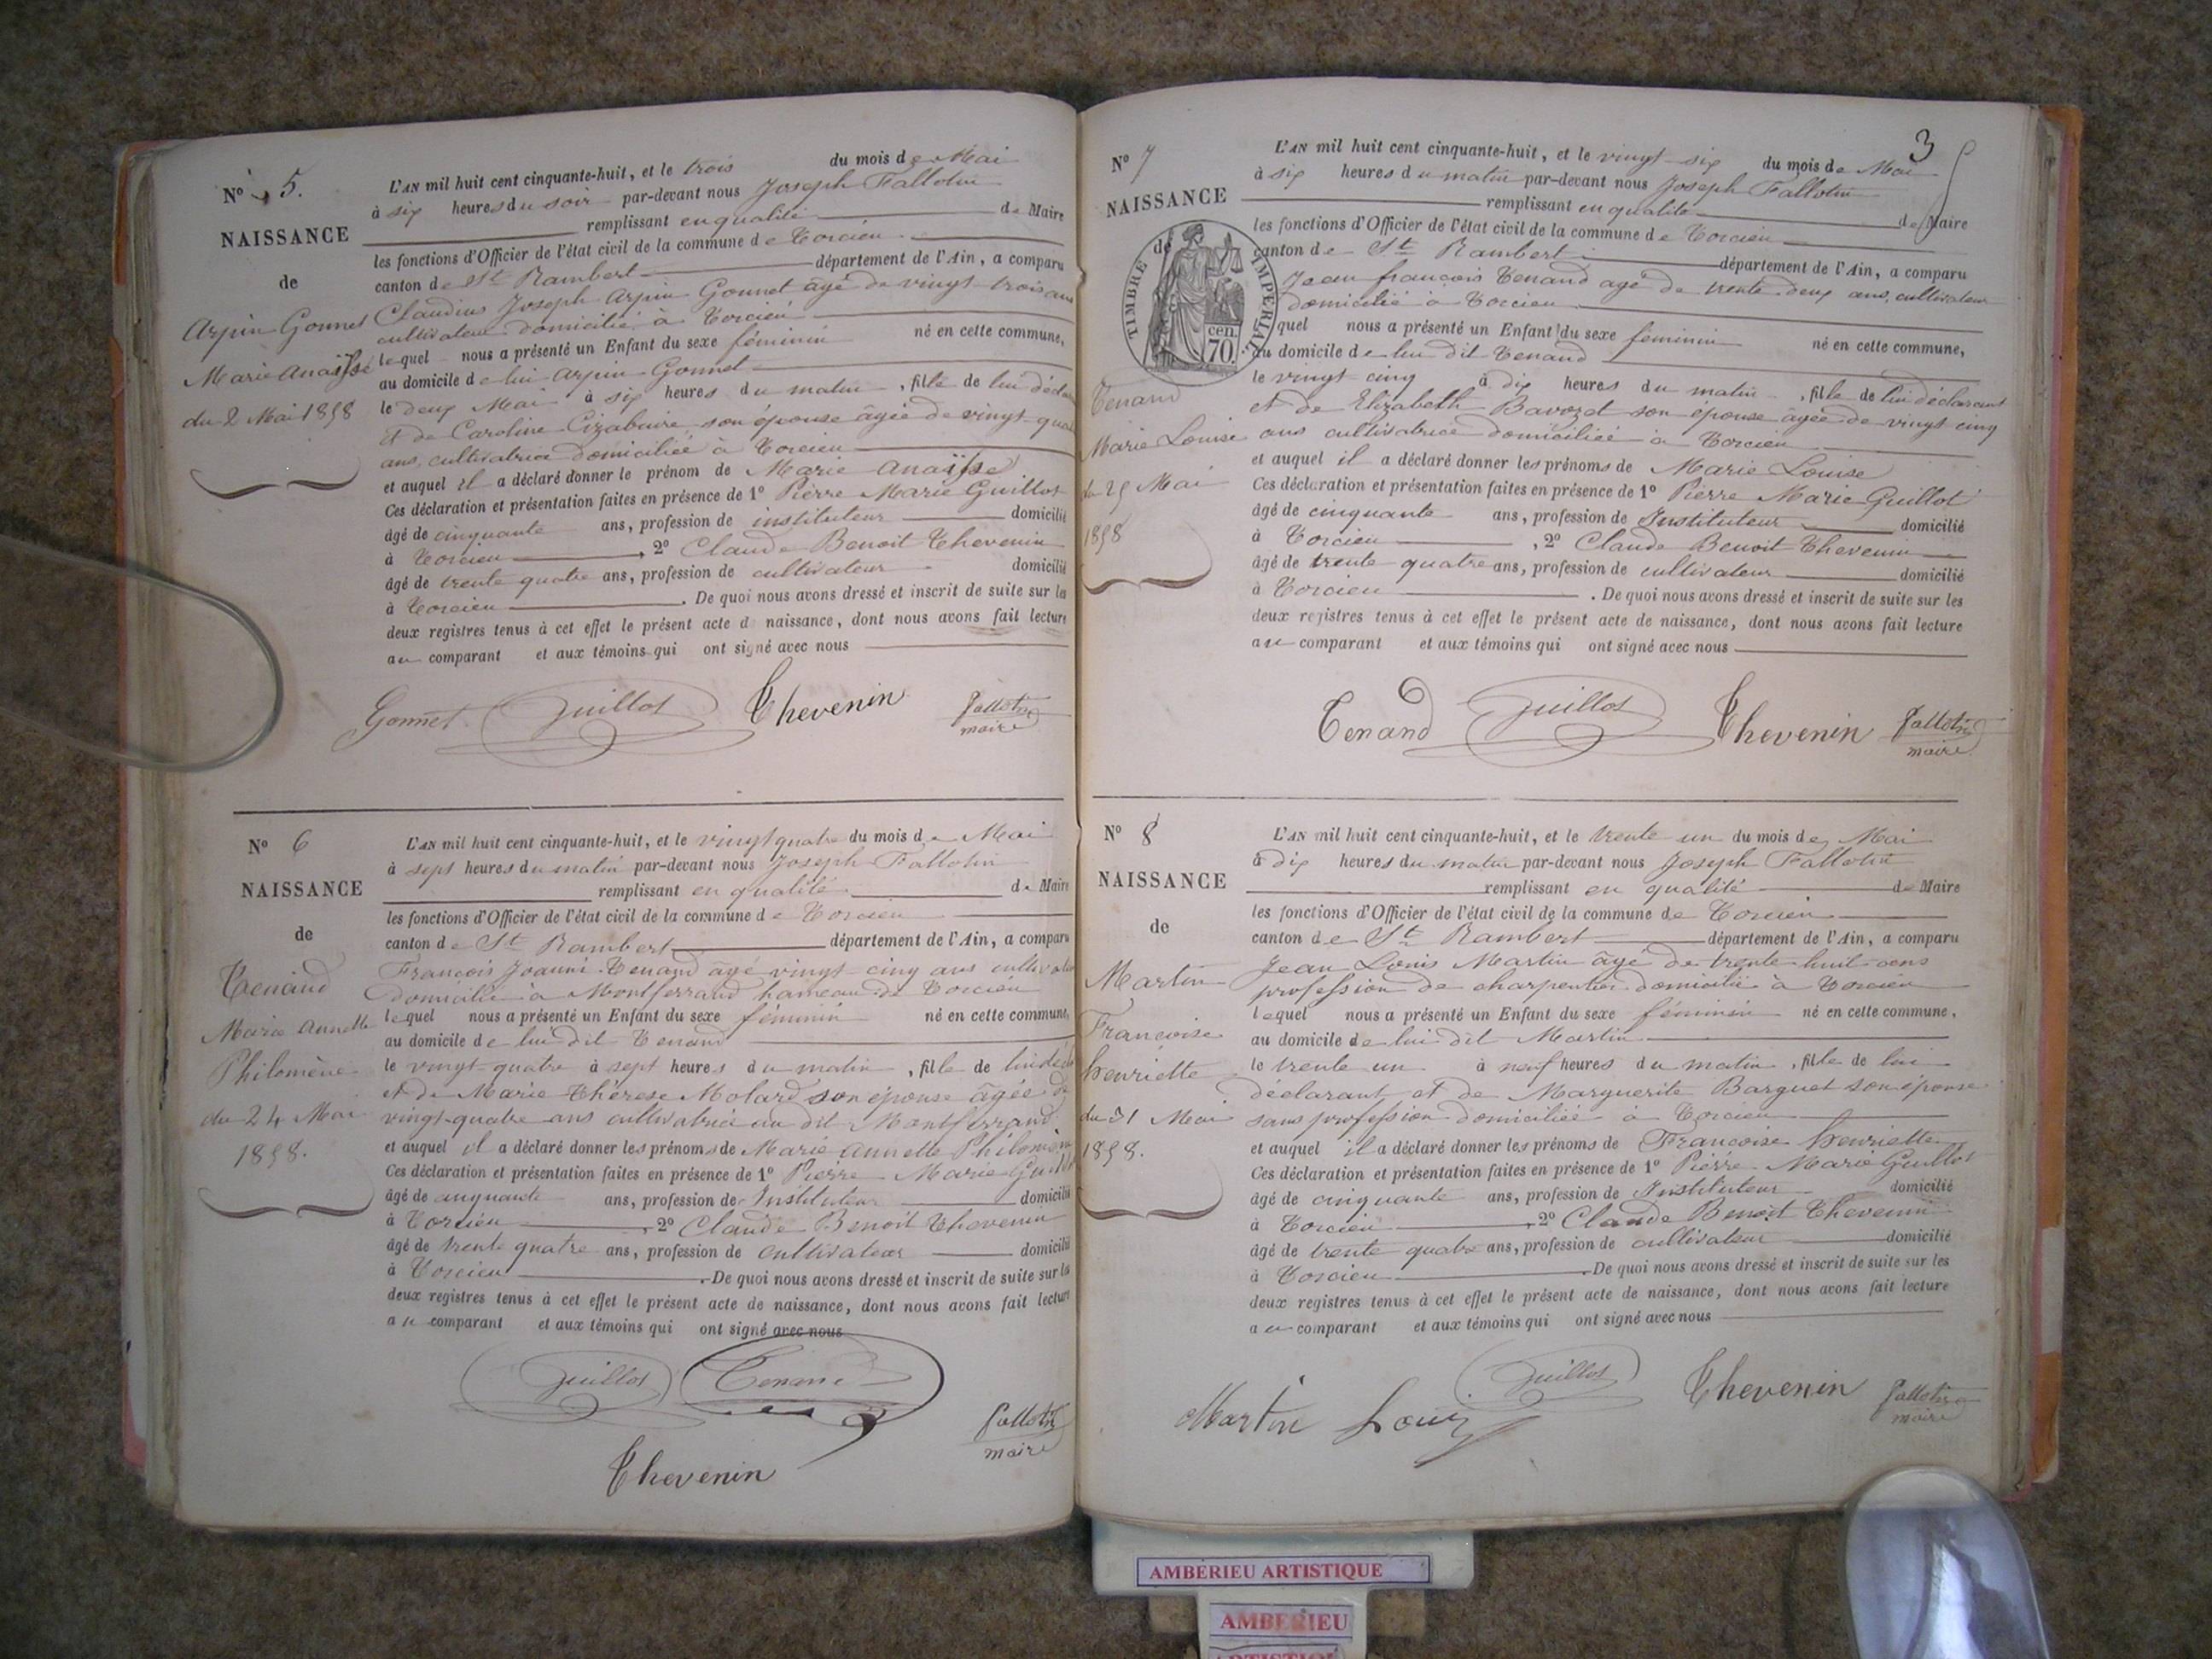 N° 5.
NAISSANCE
de
Arpin Gonnet
Marie Anaïsse
du 2 Mai 1858
L'AN mil huit cent cinquante-huit, et le trois du mois de Mai
à six heures du soir par-devant nous Joseph Fallotin
remplissant en qualité de Maire
les fonctions d'Officier de l'état civil de la commune de Torcieu
canton de St Rambert département de l'Ain, a comparu
Claudius Joseph Arpin Gonnet âgé de vingt trois ans
cultivateur domicilié à Torcieu
lequel nous a présenté un Enfant du sexe féminin né en cette commune,
au domicile de lui Arpin Gonnet
le deux Mai à six heures du matin, fille de lui
et de Caroline son épouse âgée de vingt
ans, cultivatrice domiciliée à Torcieu
et auquel il a déclaré donner le prénom de Marie Anaïsse
Ces déclaration et présentation faites en présence de 1° Pierre Marie Guillot
âgé de cinquante ans, profession de instituteur domicilié
à Torcieu, 2° Claude Benoit Thevenin
âgé de trente quatre ans, profession de cultivateur domicilié
à Torcieu. De quoi nous avons dressé et inscrit de suite sur les
deux registres tenus à cet effet le présent acte de naissance, dont nous avons fait lecture
au comparant et aux témoins qui ont signé avec nous
Gonnet Guillot Thevenin Fallotin
maire
N° 6
NAISSANCE
de
Tenand
Marie Annette
Philomène
du 24 Mai
1858.
L'AN mil huit cent cinquante-huit, et le vingt quatre du mois de Mai
à sept heures du matin par-devant nous Joseph Fallotin
remplissant en qualité de Maire
les fonctions d'Officier de l'état civil de la commune de Torcieu
canton de St Rambert département de l'Ain, a comparu
François Joanni Tenand âgé vingt-cinq ans
domicilié à Montferrand hameau de Torcieu
lequel nous a présenté un Enfant du sexe féminin né en cette commune,
au domicile de lui dit Tenand
le vingt-quatre à sept heures du matin, fille de lui
et de Marie Thérèse Molard son épouse âgée de
vingt-quatre ans cultivatrice au dit Montferrand
et auquel il a déclaré donner les prénoms de Marie Annette Philomène
Ces déclaration et présentation faites en présence de 1° Pierre Marie Guillot
âgé de cinquante ans, profession de Instituteur domicilié
à Torcieu, 2° Claude Benoit Thevenin
âgé de trente quatre ans, profession de cultivateur domicilié
à Torcieu. De quoi nous avons dressé et inscrit de suite sur les
deux registres tenus à cet effet le présent acte de naissance, dont nous avons fait lecture
au comparant et aux témoins qui ont signé avec nous
Guillot Tenand
Fallotin
maire
Thevenin
3
N° 7
NAISSANCE
de
TIMBRE IMPÉRIAL
cen.
70.
Tenand
Marie Louise
du 25 Mai
1858
L'AN mil huit cent cinquante-huit, et le vingt-six du mois de Mai
à six heures du matin par-devant nous Joseph Fallotin
remplissant en qualité de Maire
les fonctions d'Officier de l'état civil de la commune de Torcieu
canton de St Rambert département de l'Ain, a comparu
Jean françois Tenand agé de trente deux ans, cultivateur
domicilié à Torcieu
quel nous a présenté un Enfant du sexe féminin né en cette commune,
au domicile de lui dit Tenand
le vingt-cinq à dix heures du matin, fille de lui déclarant
et de Elizabeth Bavozet son épouse âgée de vingt cinq
ans cultivatrice domiciliée à Torcieu
et auquel il a déclaré donner les prénoms de Marie Louise
Ces déclaration et présentation faites en présence de 1° Pierre Marie Guillot
âgé de cinquante ans, profession de Instituteur domicilié
à Torcieu, 2° Claude Benoit Thevenin
âgé de trente quatre ans, profession de cultivateur domicilié
à Torcieu. De quoi nous avons dressé et inscrit de suite sur les
deux registres tenus à cet effet le présent acte de naissance, dont nous avons fait lecture
au comparant et aux témoins qui ont signé avec nous
Tenand Guillot Thevenin Fallotin
maire
N° 8
NAISSANCE
de
Martin
Françoise
henriette
du 31 Mai
1858.
L'AN mil huit cent cinquante-huit, et le trente un du mois de Mai
à dix heures du matin par-devant nous Joseph Fallotin
remplissant en qualité de Maire
les fonctions d'Officier de l'état civil de la commune de Torcieu
canton de St Rambert département de l'Ain, a comparu
Jean Louis Martin âgé de trente huit ans
profession de charpentier domicilié à Torcieu
lequel nous a présenté un Enfant du sexe féminin né en cette commune,
au domicile de lui dit Martin
le trente un à neuf heures du matin, fille de lui
déclarant et de Marguerite Barguet son épouse
sans profession domiciliée à Torcieu
et auquel il a déclaré donner les prénoms de Françoise henriette
Ces déclaration et présentation faites en présence de 1° Pierre Marie Guillot
âgé de cinquante ans, profession de Instituteur domicilié
à Torcieu, 2° Claude Benoit Thevenin
âgé de trente quatre ans, profession de cultivateur domicilié
à Torcieu. De quoi nous avons dressé et inscrit de suite sur les
deux registres tenus à cet effet le présent acte de naissance, dont nous avons fait lecture
au comparant et aux témoins qui ont signé avec nous
Martin Louis Guillot Thevenin Fallotin
maire
AMBÉRIEU ARTISTIQUE
AMBERIEU
ARTISTIQUE